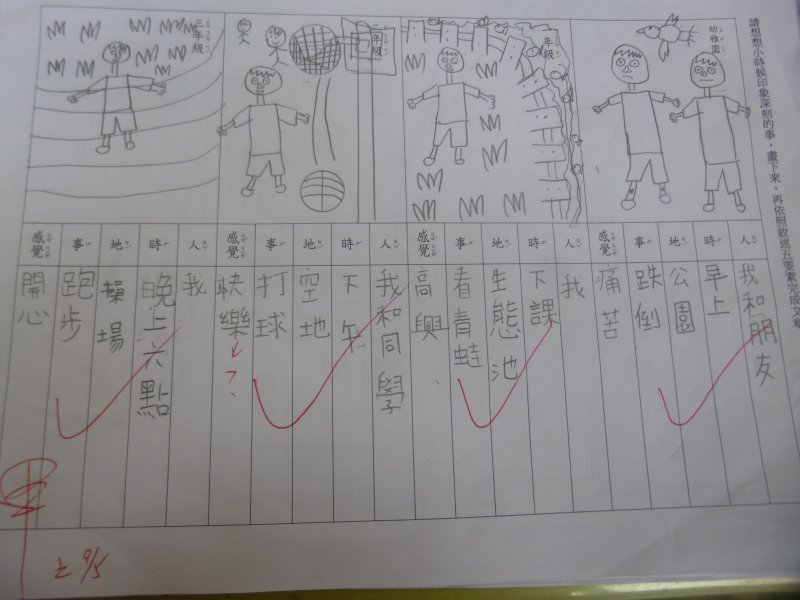 請想想小時候印象深刻的事，畫下來，再依照敘述五要素完成文章
幼稚園
人
我和朋友
時
早上
地
公園
事
跌倒
感覺
痛苦
一年級
人
我
時
下課
地
生態池
事
看青蛙
感覺
高興
二年級
人
我和同學
時
下午
地
空地
事
打球
感覺
快樂
?
三年級
人
我
時
晚上六點
地
操場
事
跑步
感覺
開心
9/5